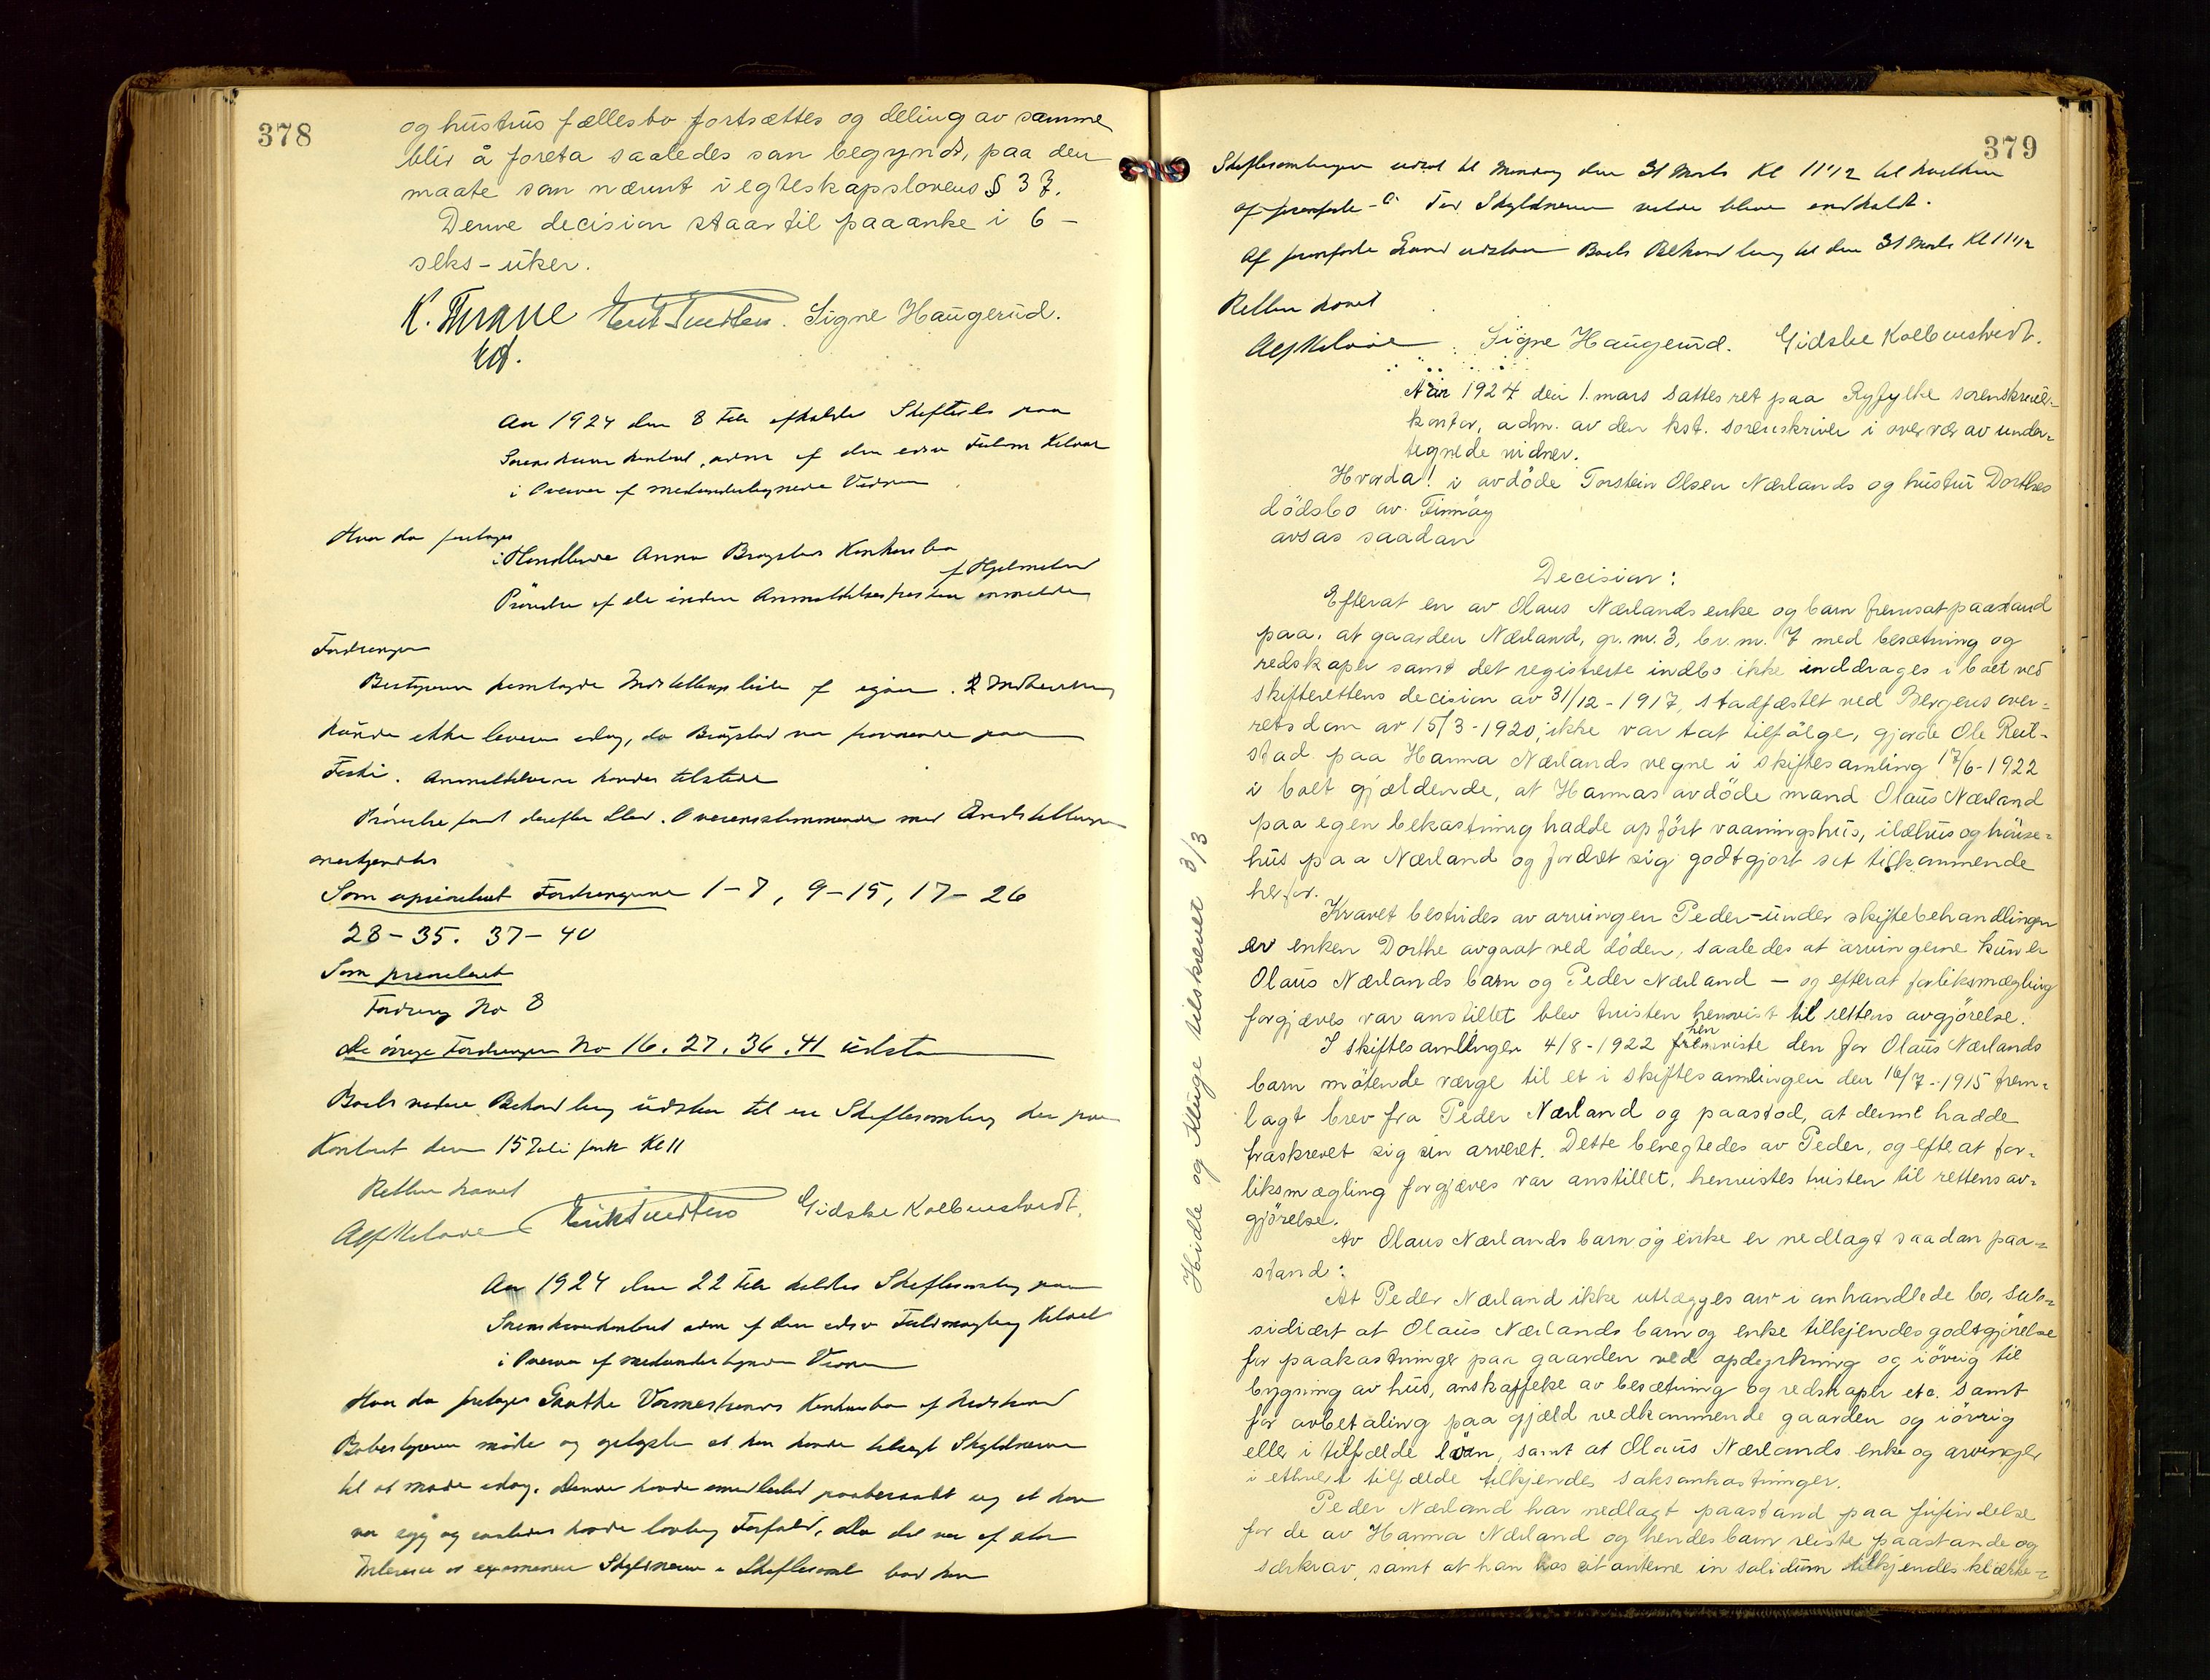 378
og hustrus fællesbo fortsættes og deling av samme
blir å foreta saaledes som begyndt, paa den
maate som nævnt i egteskapslovens § 37.
Denne decision staar til paaanke i 6 -
seks - uker.
K. Thrane Signe Haugerud.
kst.
Aar 1924 den 8 Feb afholdtes Skifteret paa
Sorenskriverkontoret, adm af den edsv Fuldm Kelvae
i Overvær af medundertegnede Vidner
Hvor da foretoges
i Handlende Anna Brogstads Konkursbo
af Hjelmeland
Prøvelse af de inden Anmeldelsesfristen anmeldte
Fordringer
Bestyreren fremlagde Indstillingsliste af igaar. 2 Indberetning
kunde ikke leveres idag, da Brogstad var fraværende paa
Fiske. Anmeldelserne havdes tilstede
Prøvelse fandt derefter Sted. Overensstemmende med Indstillingen
anerkjendtes
Som uprioritert Fordringerne 1-7, 9-15, 17-26
28-35. 37-40
Som prioritert
Fordring No 8
De øvrige Fordringer No 16. 27. 36. 41 udstaar
Boets videre Behandling udstaar til en Skiftesamling her paa
Kontoret den 15 Juli Kl 11
Retten hævet
Alf Kelvae Gidske Kolbenstvedt.
Aar 1924 den 22 Feb holdtes Skiftesamling paa
Sorenskriverkontoret adm af den edsv Fuldmægtig Kelvae
i Overvær af medundertegnede Vidner
Hvor da foretoges Konkursbo af
Bobestyreren mødte og oplyste at han havde tilsagt Skyldneren
til at møde idag. Denne havde imidlertid paaberaabt sig at han
var syg og saaledes havde lovlig Forfald. Da det var af stor
Interesse at examinere Skyldneren i Skifteret bad han
379
Skiftesamlingen udsat til Mandag den 31 Marts Kl 11 1/2 til hvilken
Skyldneren vilde blive indkaldt.
Af fremførte Grund udstaar Boets Behandling til den 31 Marts Kl 11 1/2
Retten hævet
Alf Kelvae Signe Haugerud. Gidske Kolbenstvedt.
Aar 1924 den 1. mars sattes ret paa Ryfylke sorenskriver-
kontor, adm. av den kst. sorenskriver i overvær av under-
tegnede vidner.
Hvorda! i avdöde Torstein Olsen Nærlands og hustru Dorthes
dödsbo av Finnöy
avsas saadan
Decision:
Efterat en av Olaus Nærlands enke og barn fremsat paastand
paa, at gaarden Nærland, gr. nr. 3, br. nr. 7 med besætning og
redskaper samt det registrerte indbo ikke inddrages i boet ved
skifterettens decision av 31/12 - 1917, stadfæstet ved Bergens over-
retsdom av 15/3 - 1920, ikke var tat tilfölge, gjorde Ole Reil-
stad paa Hanna Nærlands vegne i skiftesamling 17/6 - 1922
i boet gjældende, at Hannas avdöde mand Olaus Nærland
paa egen bekostning hadde opfört vaaningshus, ildhus og hönse-
hus paa Nærland og fordret sig godtgjort sit tilkommende
herfor.
Kravet bestrides av arvingen Peder - under skiftebehandlingen
er enken Dorthe avgaat ved döden, saaledes at arvingerne kun er
Olaus Nærlands barn og Peder Nærland - og efterat forliksmægling
forgjæves var anstillet blev tvisten henvist til rettens avgjörelse.
hen
I skiftesamlingen 4/8 - 1922 fremviste den for Olaus Nærlands
barn mötende værge til et i skiftesamlingen den 16/7 - 1915 frem-
lagt brev fra Peder Nærland og paastod, at denne hadde
fraskrevet sig sin arveret. Dette benegtedes av Peder, og efterat for-
liksmægling forgjæves var anstillet, henvistes tvisten til rettens av-
gjörelse.
Av Olaus Nærlands barn og enke er nedlagt saadan paa-
stand:
At Peder Nærland ikke utlægges arv i anhandlede bo, sub-
sidiært at Olaus Nærlands barn og enke tilkjendes godtgjörelse
for paakostninger paa gaarden ved opdyrkning og iövrig til
bygning av hus, anskaffelse av besætning og redskaper etc. samt
for avbetaling paa gjæld vedkommende gaarden og iövrig
eller i tilfælde lön, samt at Olaus Nærlands enke og arvinger
i ethvert tilfælde tilkjendes saksomkostninger.
Peder Nærland har nedlagt paastand paa frifindelse
for de av Hanna Nærland og hendes barn reiste paastande og
særkrav, samt at han hos citanterne in solidum tilkjendes klække-
Hidle og Auge tilskrevet 3/3